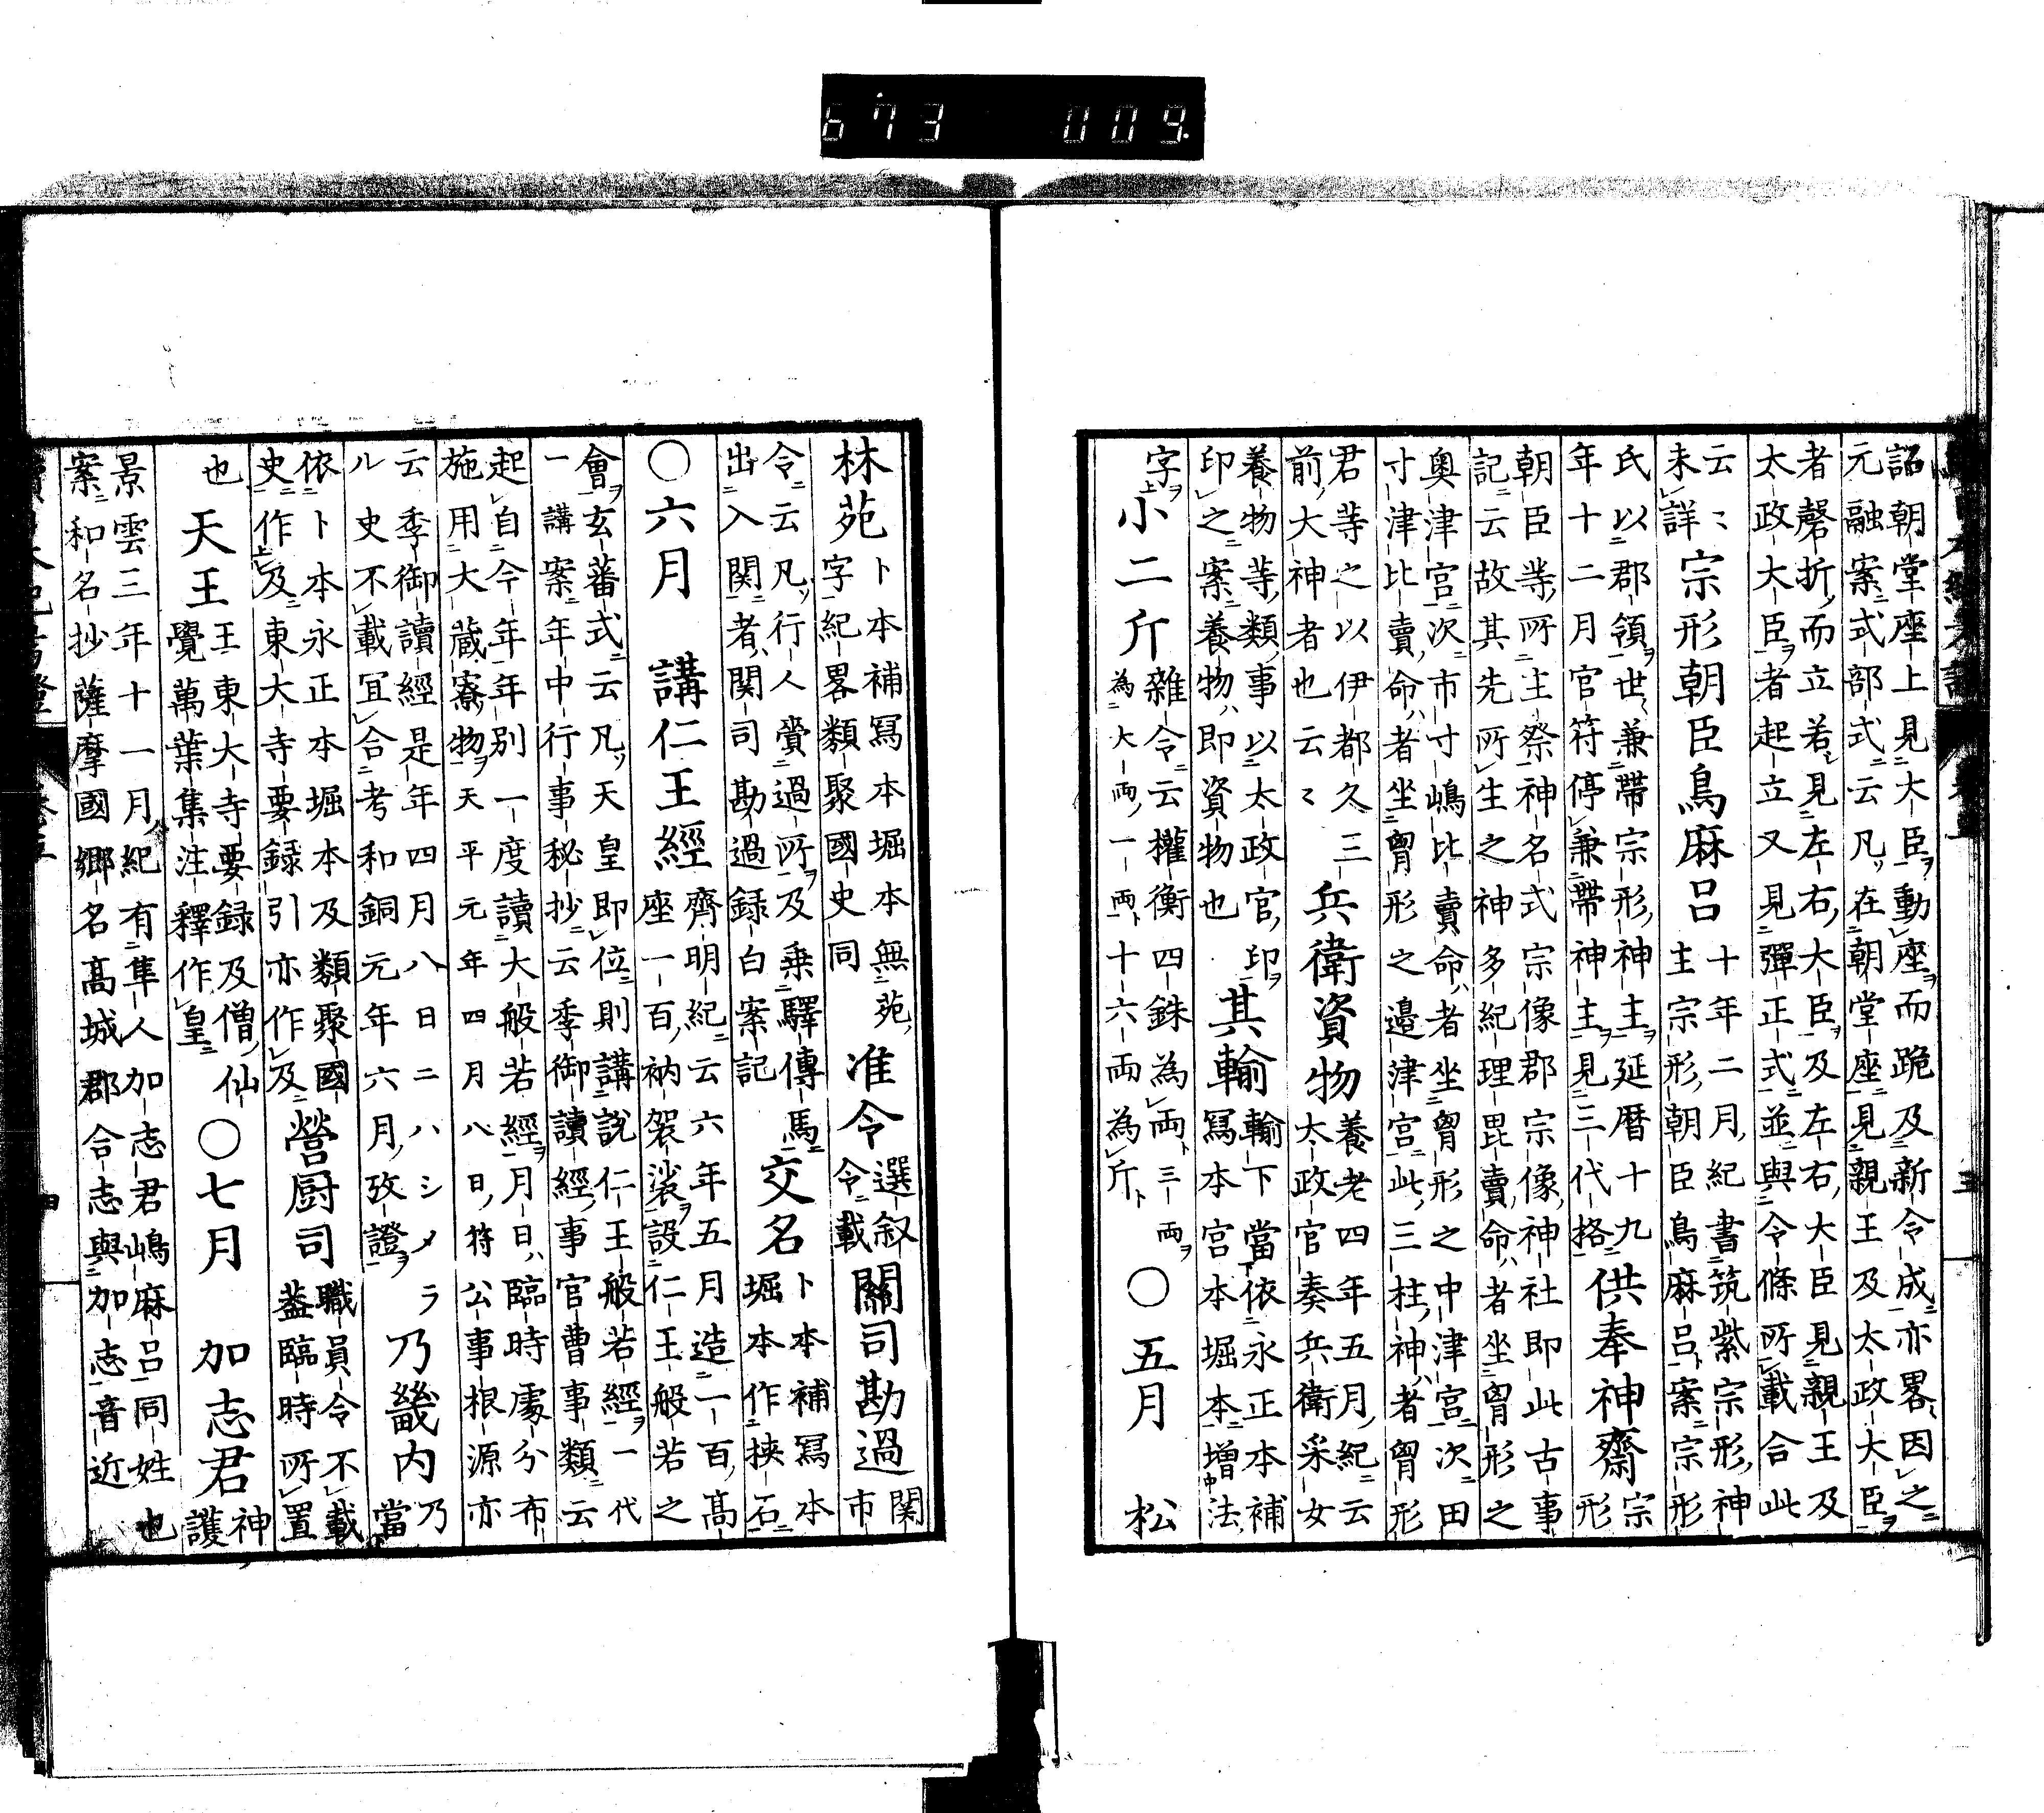 673 009
詔朝堂座上見大臣動座而跪及新令成亦畧因之
元融案式部式云凡在朝堂座見親王及太政大臣
者磬折而立若見左右大臣及左右大臣見親王及
太政大臣者起立又見彈正式並與令條所載合此
云〻
未詳
宗形朝臣鳥麻呂
十年二月紀書筑紫宗形神
主宗形朝臣鳥麻呂案宗形
氏以郡領世兼帶宗形神主延暦十九
年十二月官符停兼帶神主見三代格
供奉神齋
宗
形
朝臣等所主祭神名式宗像郡宗像神社即此古事
記云故其先所生之神多紀理毘賣命者坐胷形之
奥津宮次市寸嶋比賣命者坐胷形之中津宮次田
寸津比賣命者坐胷形之邉津宮此三柱神者胷形
君等之以伊都久三
前大神者也云〻
兵衛資物
養老四年五月紀云
太政官奏兵衛采女
養物等類事以太政官印
印之案養物即資物也
其輸
輸下當依永正本補
寫本宮本堀本増法
字
小二斤
雜令云權衡四銖為両三両
為大両一両十六両為斤
〇五月
松
林苑
卜本補寫本堀本無苑
字紀畧類聚國史同
准令
選叙
令載
關司勘過
関
市
令云凡行人賷過所及乗驛傳馬
出入関者関司勘過録白案記
交名
卜本補寫本
堀本作挟石
〇六月
講仁王經
齊明紀云六年五月造一百髙
座一百衲袈裟設仁王般若之
會玄蕃式云凡天皇即位則講說仁王般若經一代
一講案年中行事秘抄云季御讀經事官曹事類云
起自今年年別一度讀大般若經月日臨時處分布
施用大蔵寮物天平元年四月八日符公事根源亦
云季御讀經是年四月八日ニハシメラ
ル史不載冝合考和銅元年六月攷證
乃畿内
乃
當
依卜本永正本堀本及類聚國
史作及東大寺要録引亦作及
營厨司
職員令不載
葢臨時所置
也
天王
王東大寺要録及僧仙
覺萬葉集注釋作皇
〇七月
加志君
神
護
景雲三年十一月紀有隼人加志君嶋麻呂同姓也
案和名抄薩摩國郷名髙城郡合志與加志音近